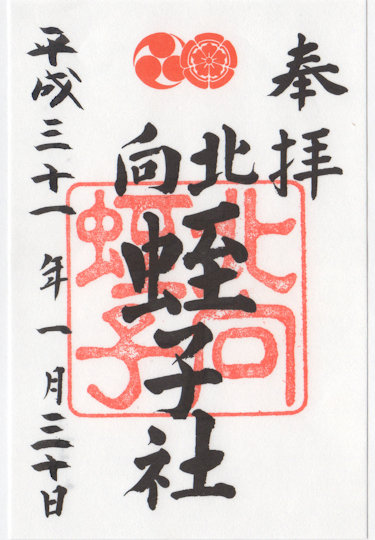 奉拝
北向
蛭子社
平成三十一年一月三十日
北向
蛭子